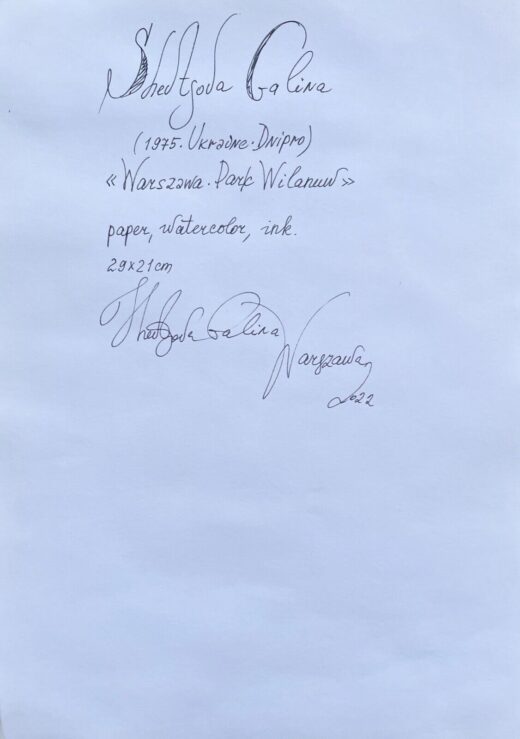 Shevtsova Galina
(1975. Ukraine. Dnipro)
«Warszawa. Park Wilanuw»
paper, watercolor, ink.
29x21cm
Galina
Warszawa
2022